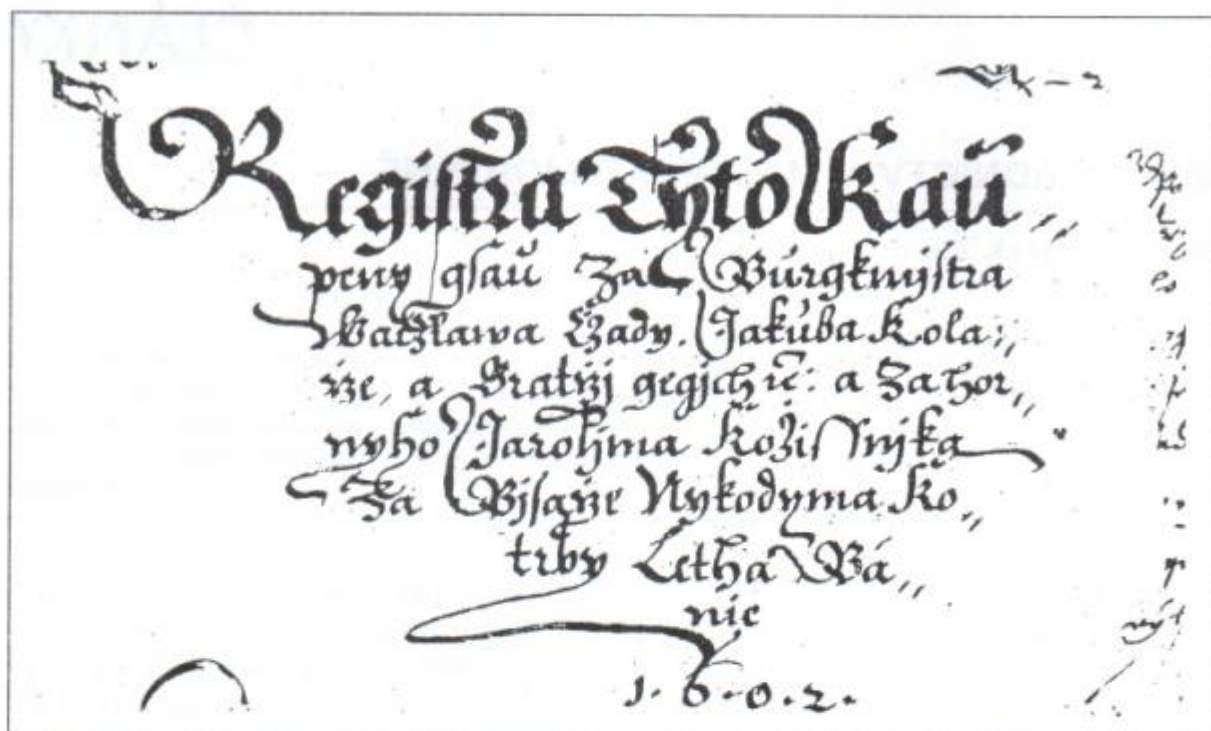 Registra Tyto Kau„
peny gsau Za Burgkmistra
Waczlawa Czady. Jakuba Kola„
rze, a Bratrzj gegjch ic: a Za hor„
nyho Jarolyma Kožissnjka
Za Pjsarze Nykodyma Ko„
trby Letha Pá„
nie
1.6.0.2.